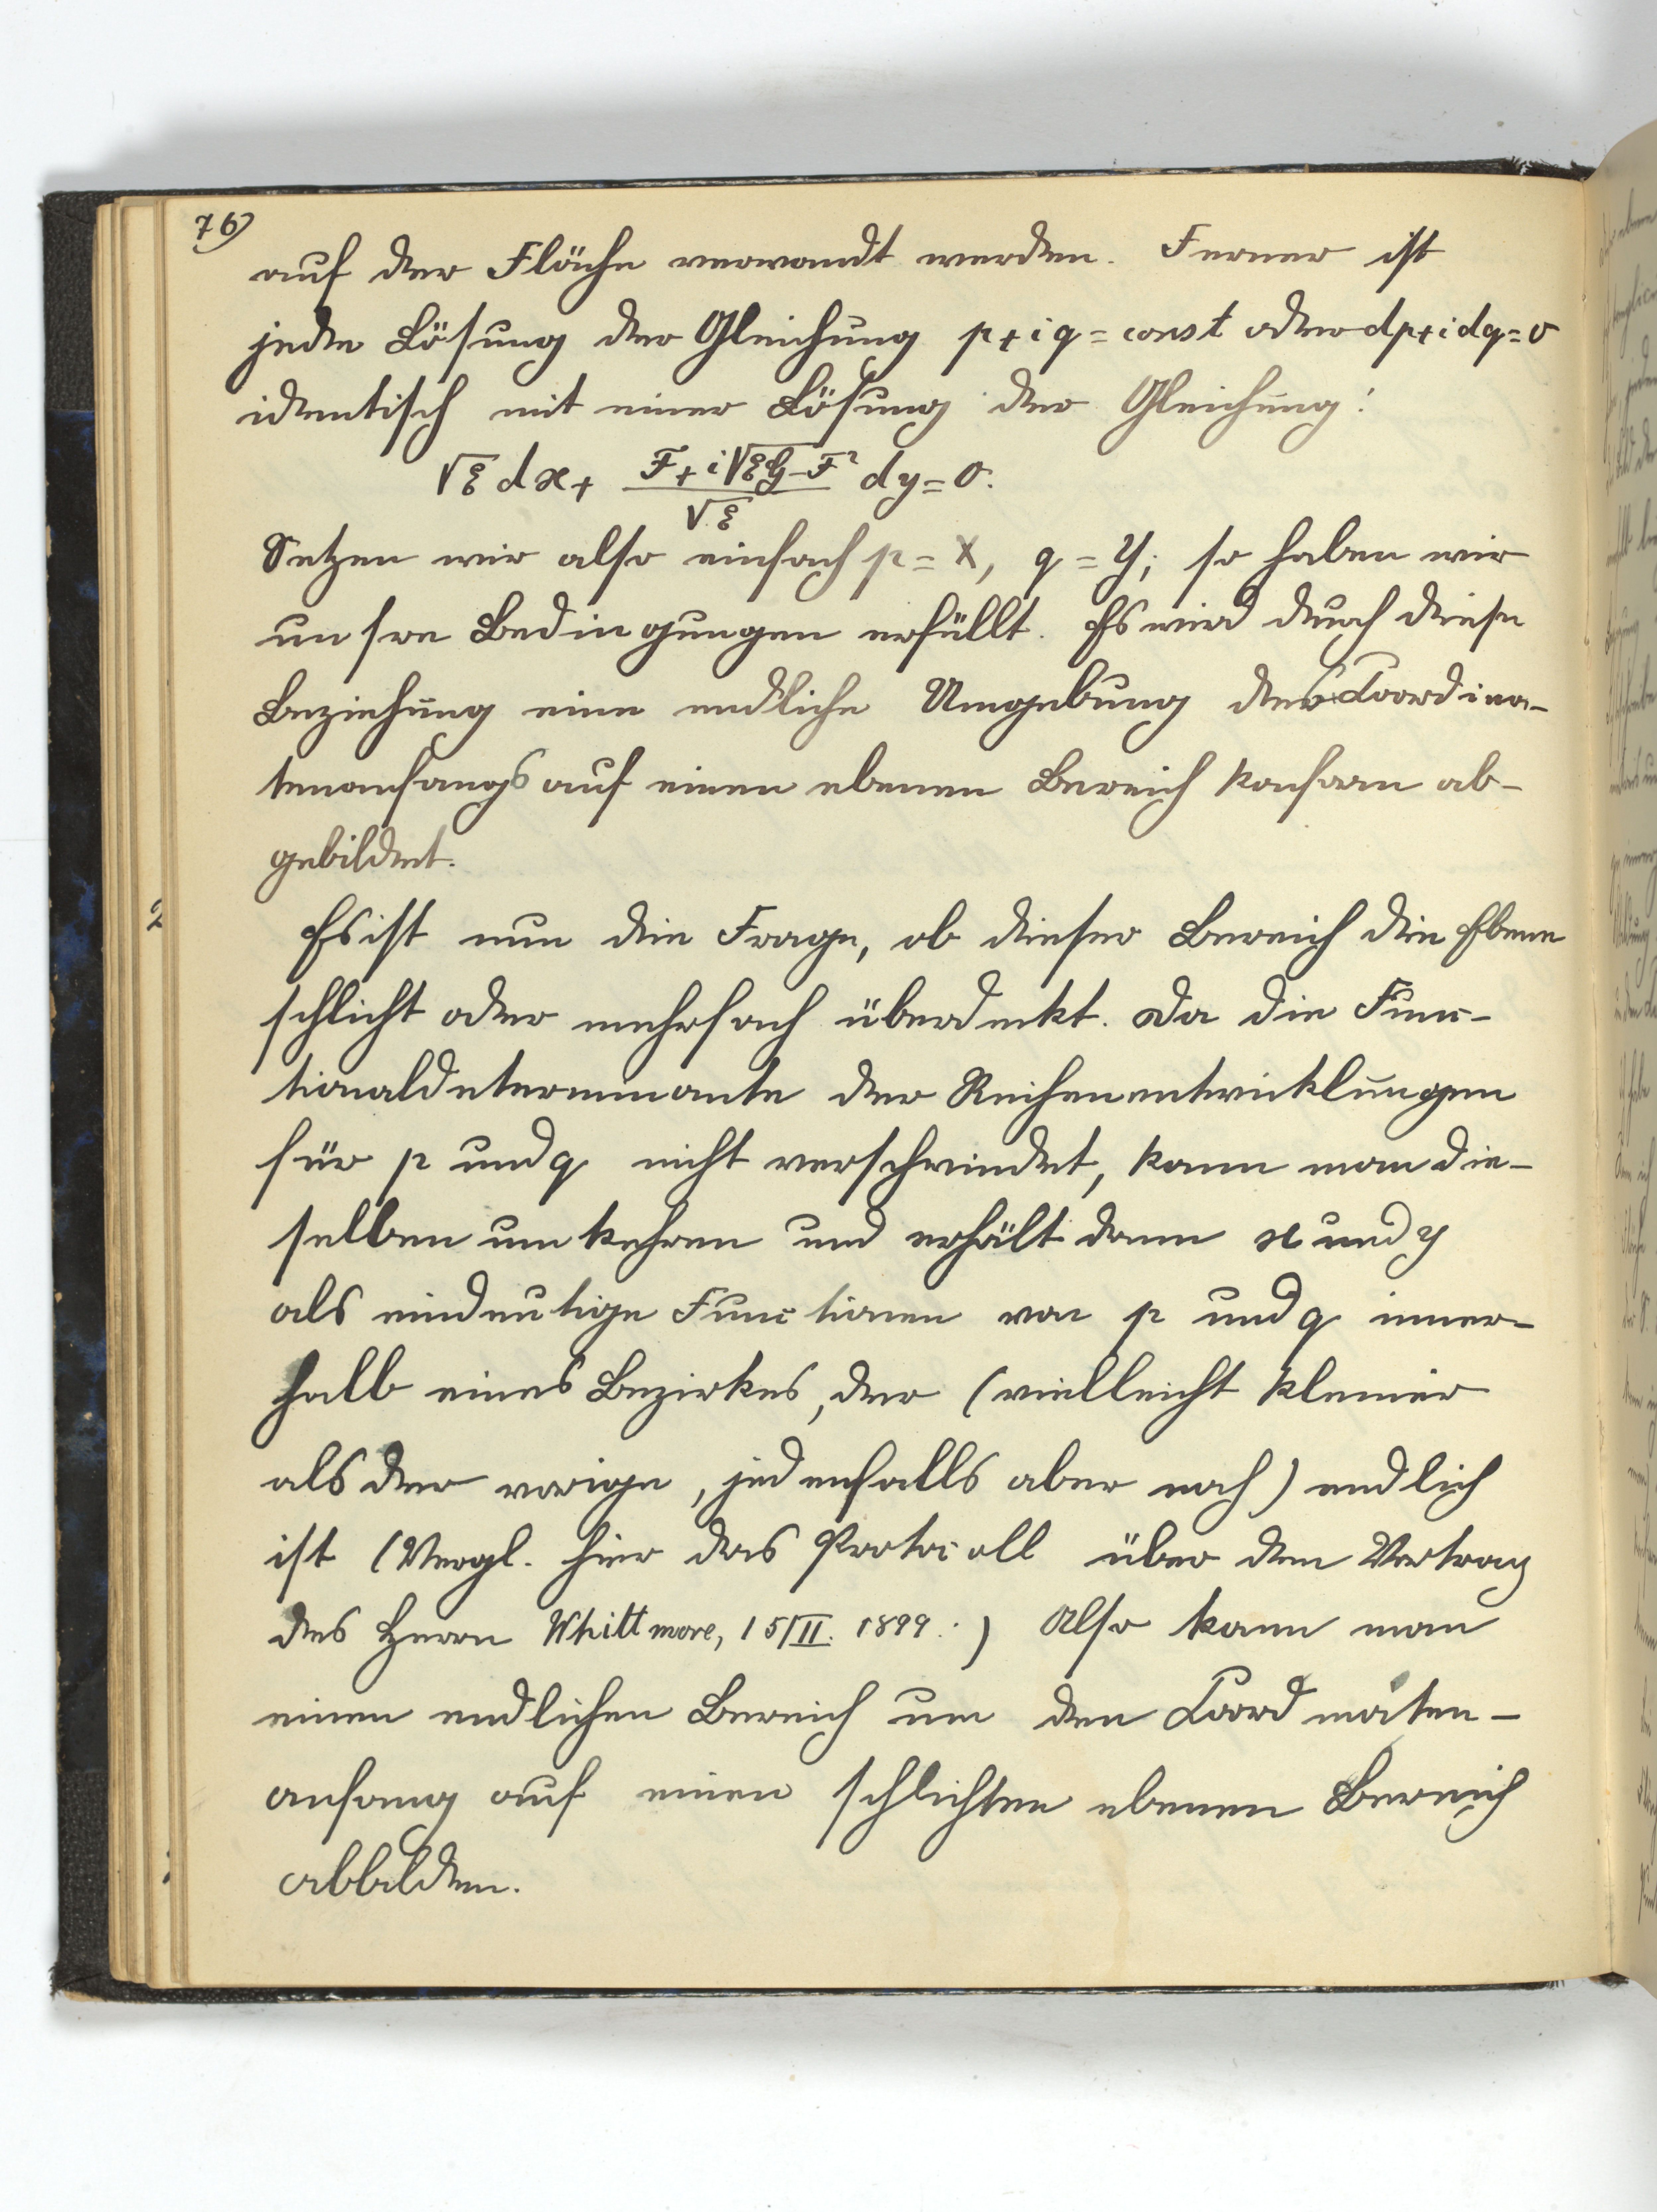 76)
auf der Fläche verwandt werden. Ferner ist
jede Lösung der Gleichung p+iq=const oder dp+idq=0
identisch mit einer Lösung der Gleichung:
√E dx + (F+i√(EG-F²))/√E dy=0.
Setzen wir also einfach p=X, q=Y; so haben wir
unsre Bedingungen erfüllt. Es wird durch diese
Beziehung eine endliche Umgebung des Coordina-
tenanfangs auf einen ebenen Bereich konform ab-
gebildet.
Es ist nun die Frage, ob dieser Bereich die Ebene
schlicht oder mehrfach überdeckt. Da die Func-
tionaldeterminante der Reihenentwicklungen
für p und q nicht verschwindet, kann man die-
selben umkehren und erhält dann x und y
als eindeutige Functionen von p und q inner-
halb eines Bezirkes, der (vielleicht kleiner
als der vorige, jedenfalls aber noch) endlich
ist (Vergl. hier das Protocoll über den Vortrag
des Herrn Whittmore, 15/II. 1899.) Also kann man
einen endlichen Bereich um den Coordinaten-
anfang auf einen schlichten ebenen Bereich
abbilden.